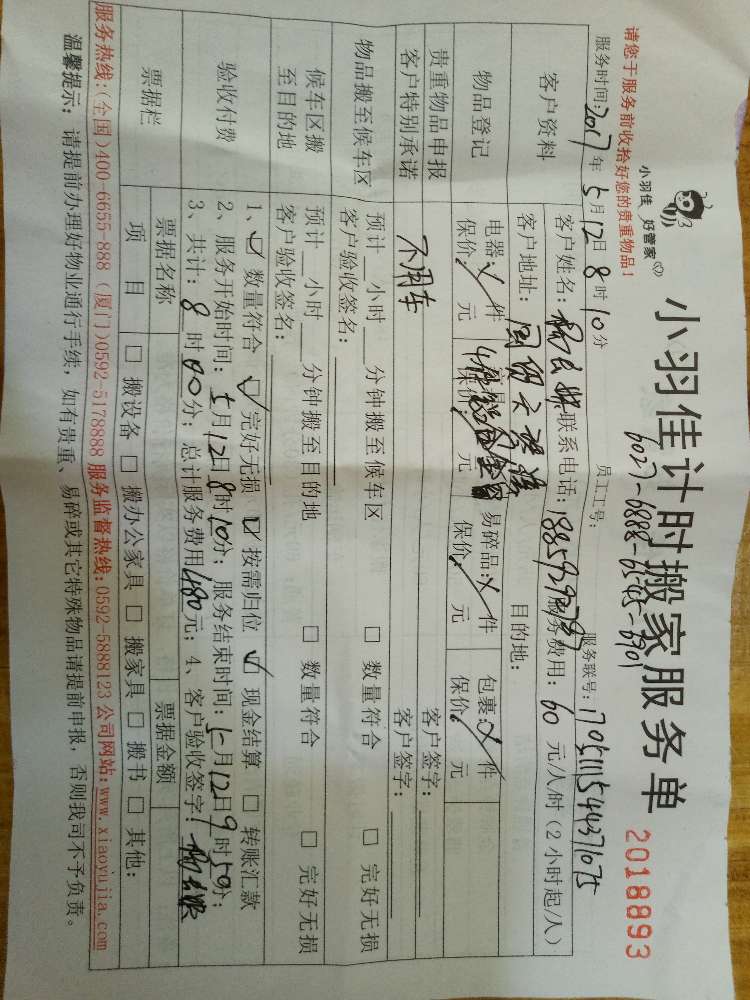 小羽佳 好管家
小羽佳计时搬家服务单
2018893
请您于服务前收拾好您的贵重物品!
员工工号:
6027-6888-6545-6901
服务联号:
服务时间:2017年5月12日8时10分
客户资料
客户姓名:
联系电话:
服务费用:60元/人/时(2小时起/人)
客户地址:
目的地:
物品登记
电器: 件
易碎品: 件
包裹: 件
保价: 元
保价: 元
保价: 元
保价: 元
贵重物品申报
客户签字:
客户特别承诺
不用车
客户签字:
物品搬至候车区
预计__小时__分钟搬至候车区 □ 数量符合 □ 完好无损
客户验收签名:
候车区搬至目的地
预计__小时__分钟搬至目的地 □ 数量符合 □ 完好无损
客户验收签名:
验收付费
1、☑ 数量符合 ☑ 完好无损 ☑ 按需归位 ☑ 现金结算 □ 转账汇款
2、服务开始时间:5月12日8时10分;服务结束时间:5月12日9时50分;
3、共计:8时00分;总计服务费用480元;4、客户验收签字:
票据栏
票据名称
票据金额
项目 □ 搬设备 □ 搬办公家具 □ 搬家具 □ 搬书 □ 其他:
服务热线:(全国)400-6655-888 (厦门)0592-5178888 服务监督热线:0592-5888123 公司网站:www.xiaoyujia.com
温馨提示: 请提前办理好物业通行手续,如有贵重、易碎或其它特殊物品请提前申报,否则我司不予负责。